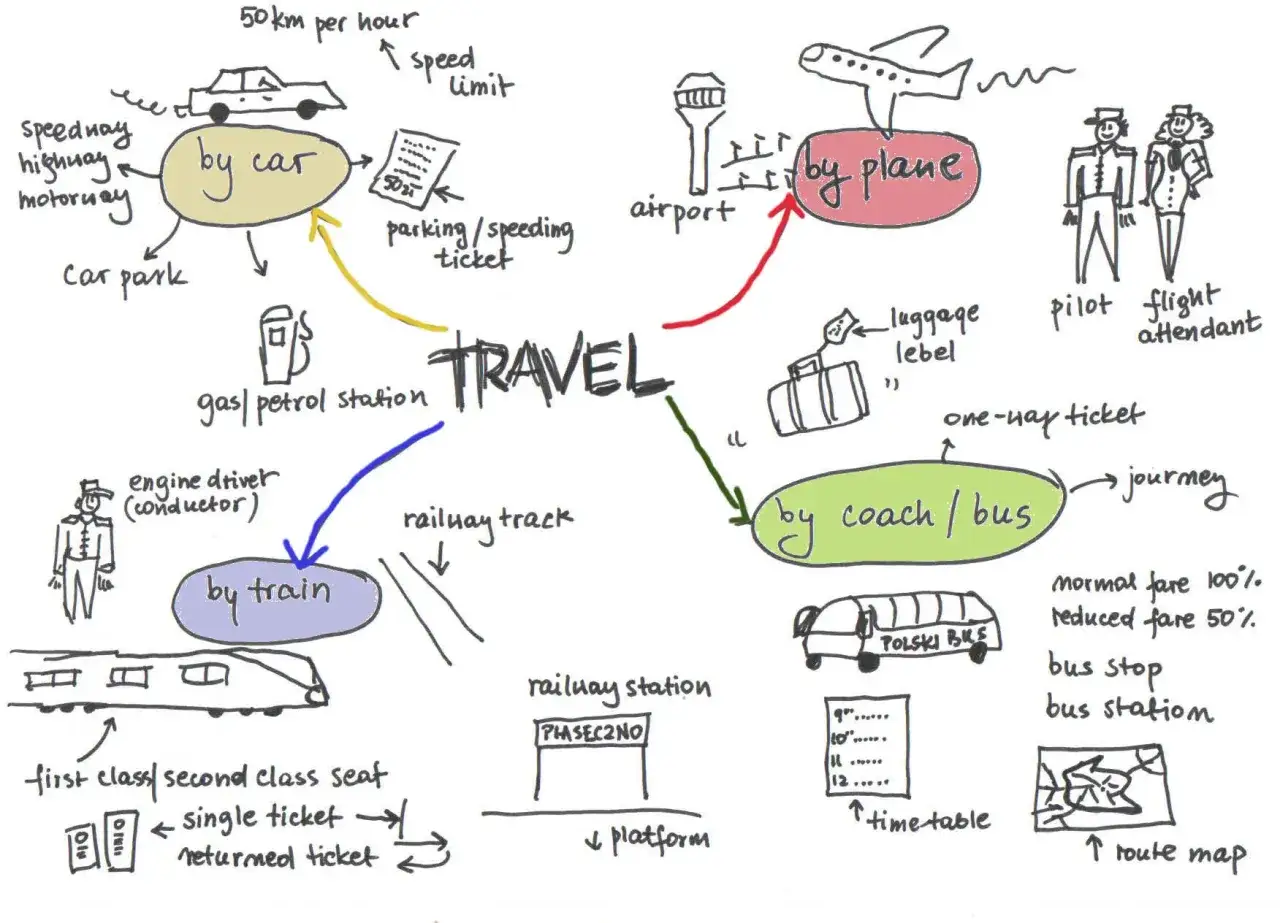 50 km per hour
speed
limit
speedway
highway
motorway
by car
50 zł
parking/speeding
ticket
car park
gas/petrol station
by plane
airport
pilot
flight
attendant
TRAVEL
luggage
lebel
one-way ticket
by coach/bus
journey
normal fare 100%
reduced fare 50%
POLSKI BUS
bus stop
bus station
9
10
11
12
timetable
route map
engine driver
(conductor)
railway track
by train
first class/second class seat
single ticket
returned ticket
railway station
PIASECZNO
platform